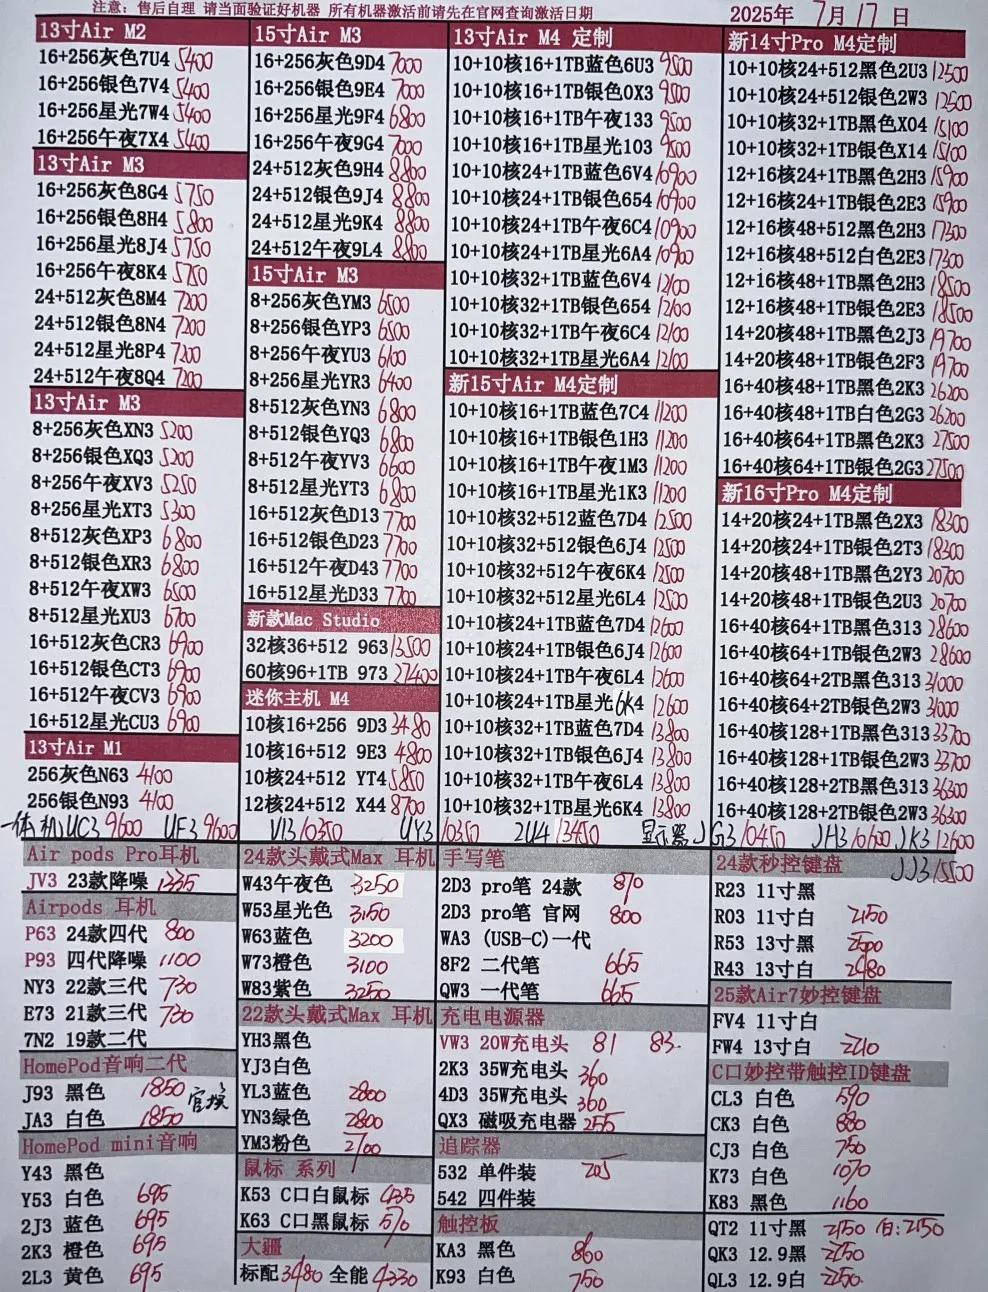 注意: 售后自理 请当面验证好机器 所有机器激活前请先在官网查询激活日期
2025年 7月17日
13寸Air M2
16+256灰色7U4 5400
16+256银色7V4 5400
16+256星光7W4 5400
16+256午夜7X4 5400
13寸Air M3
16+256灰色8G4 5750
16+256银色8H4 5800
16+256星光8J4 5750
16+256午夜8K4 5750
24+512灰色8M4 7200
24+512银色8N4 7200
24+512星光8P4 7200
24+512午夜8Q4 7200
13寸Air M3
8+256灰色XN3 5200
8+256银色XQ3 5200
8+256午夜XV3 5250
8+256星光XT3 5300
8+512灰色XP3 6800
8+512银色XR3 6800
8+512午夜XW3 6500
8+512星光XU3 6700
16+512灰色CR3 6900
16+512银色CT3 6900
16+512午夜CV3 6900
16+512星光CU3 6900
13寸Air M1
256灰色N63 4100
256银色N93 4100
15寸Air M3
16+256灰色9D4 7000
16+256银色9E4 7000
16+256星光9F4 6800
16+256午夜9G4 7000
24+512灰色9H4 8800
24+512银色9J4 8800
24+512星光9K4 8800
24+512午夜9L4 8800
15寸Air M3
8+256灰色YM3 6500
8+256银色YP3 6500
8+256午夜YU3 6100
8+256星光YR3 6400
8+512灰色YN3 6800
8+512银色YQ3 6800
8+512午夜YV3 6600
8+512星光YT3 6800
16+512灰色D13 7700
16+512银色D23 7700
16+512午夜D43 7700
16+512星光D33 7700
新款Mac Studio
32核36+512 963 13500
60核96+1TB 973 27400
迷你主机 M4
10核16+256 9D3 3480
10核16+512 9E3 4800
10核24+512 YT4 5850
12核24+512 X44 8700
13寸Air M4 定制
10+10核16+1TB蓝色6U3 9500
10+10核16+1TB银色0X3 9500
10+10核16+1TB午夜133 9500
10+10核16+1TB星光103 9500
10+10核24+1TB蓝色6V4 10900
10+10核24+1TB银色654 10900
10+10核24+1TB午夜6C4 10900
10+10核24+1TB星光6A4 10900
10+10核32+1TB蓝色6V4 12100
10+10核32+1TB银色654 12100
10+10核32+1TB午夜6C4 12100
10+10核32+1TB星光6A4 12100
新15寸Air M4定制
10+10核16+1TB蓝色7C4 11200
10+10核16+1TB银色1H3 11200
10+10核16+1TB午夜1M3 11200
10+10核16+1TB星光1K3 11200
10+10核32+512蓝色7D4 12500
10+10核32+512银色6J4 12500
10+10核32+512午夜6K4 12500
10+10核32+512星光6L4 12500
10+10核24+1TB蓝色7D4 12600
10+10核24+1TB银色6J4 12600
10+10核24+1TB午夜6L4 12600
10+10核24+1TB星光6K4 12600
10+10核32+1TB蓝色7D4 13800
10+10核32+1TB银色6J4 13800
10+10核32+1TB午夜6L4 13800
10+10核32+1TB星光6K4 13800
新14寸Pro M4定制
10+10核24+512黑色2U3 12500
10+10核24+512银色2W3 12500
10+10核32+1TB黑色X04 15100
10+10核32+1TB银色X14 15100
12+16核24+1TB黑色2H3 15900
12+16核24+1TB银色2E3 15900
12+16核48+512黑色2H3 17300
12+16核48+512白色2E3 17300
12+16核48+1TB黑色2H3 18500
12+16核48+1TB银色2E3 18500
14+20核48+1TB黑色2J3 19700
14+20核48+1TB银色2F3 19700
16+40核48+1TB黑色2K3 26200
16+40核48+1TB白色2G3 26200
16+40核64+1TB黑色2K3 27500
16+40核64+1TB银色2G3 27500
新16寸Pro M4定制
14+20核24+1TB黑色2X3 18300
14+20核24+1TB银色2T3 18300
14+20核48+1TB黑色2Y3 20700
14+20核48+1TB银色2U3 20700
16+40核64+1TB黑色313 28600
16+40核64+1TB银色2W3 28600
16+40核64+2TB黑色313 31000
16+40核64+2TB银色2W3 31000
16+40核128+1TB黑色313 33700
16+40核128+1TB银色2W3 33700
16+40核128+2TB黑色313 36300
16+40核128+2TB银色2W3 36300
一体机UC3 9600 UF3 9600 V13 10350 UY3 10350 2U4 13450 显示器JG3 10450 JH3 10600 JK3 12600
JJ3 15500
Air pods Pro耳机
JV3 23款降噪 1335
Airpods 耳机
P63 24款四代 800
P93 四代降噪 1100
NY3 22款三代 730
E73 21款三代 730
7N2 19款二代
HomePod音响二代
J93 黑色 1850 官换
JA3 白色 1850
HomePod mini音响
Y43 黑色
Y53 白色 695
2J3 蓝色 695
2K3 橙色 695
2L3 黄色 695
24款头戴式Max 耳机
W43午夜色 3250
W53星光色 3150
W63蓝色 3200
W73橙色 3100
W83紫色 3250
22款头戴式Max 耳机
YH3黑色
YJ3白色
YL3蓝色 2800
YN3绿色 2800
YM3粉色 2700
鼠标 系列
K53 C口白鼠标 435
K63 C口黑鼠标 570
大疆
标配3480 全能 4330
手写笔
2D3 pro笔 24款 810
2D3 pro笔 官网 800
WA3 (USB-C)一代
8F2 二代笔 665
QW3 一代笔 665
充电电源器
VW3 20W充电头 81 83.
2K3 35W充电头 360
4D3 35W充电头 360
QX3 磁吸充电器 255
追踪器
532 单件装 205
542 四件装
触控板
KA3 黑色 860
K93 白色 750
24款秒控键盘
R23 11寸黑
R03 11寸白 2150
R53 13寸黑 2500
R43 13寸白 2480
25款Air7妙控键盘
FV4 11寸白
FW4 13寸白 2210
C口妙控带触控ID键盘
CL3 白色 590
CK3 白色 880
CJ3 白色 750
K73 白色 1070
K83 黑色 1160
QT2 11寸黑 2150 白:2150
QK3 12.9黑 2250
QL3 12.9白 2250